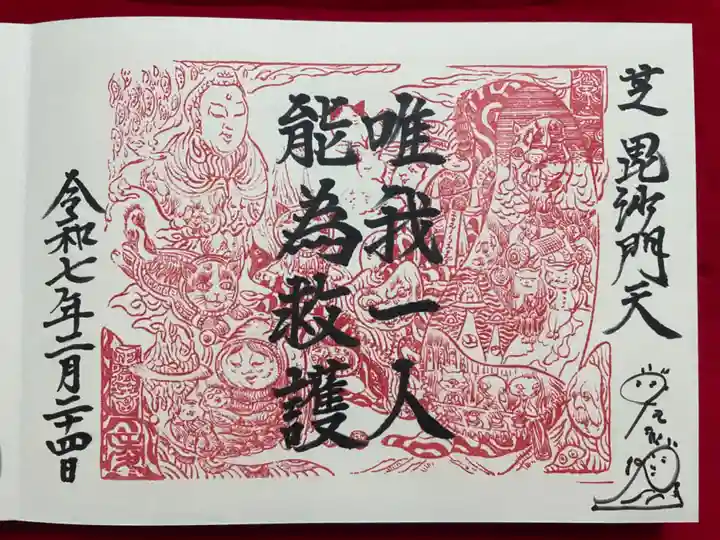 芝 毘沙門天
唯我一人
能為救護
令和七年二月二十四日